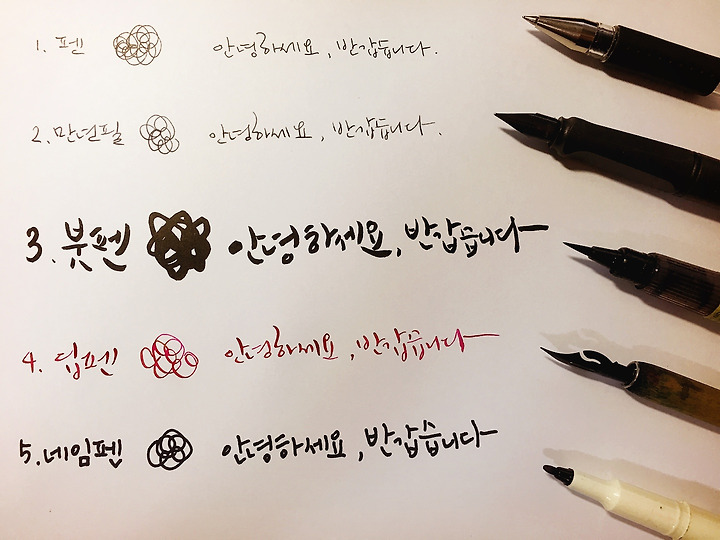 1. 펜 안녕하세요, 반갑습니다.
2. 만년필 안녕하세요, 반갑습니다.
3. 붓펜 안녕하세요, 반갑습니다
4. 딥펜 안녕하세요, 반갑습니다
5. 네임펜 안녕하세요, 반갑습니다